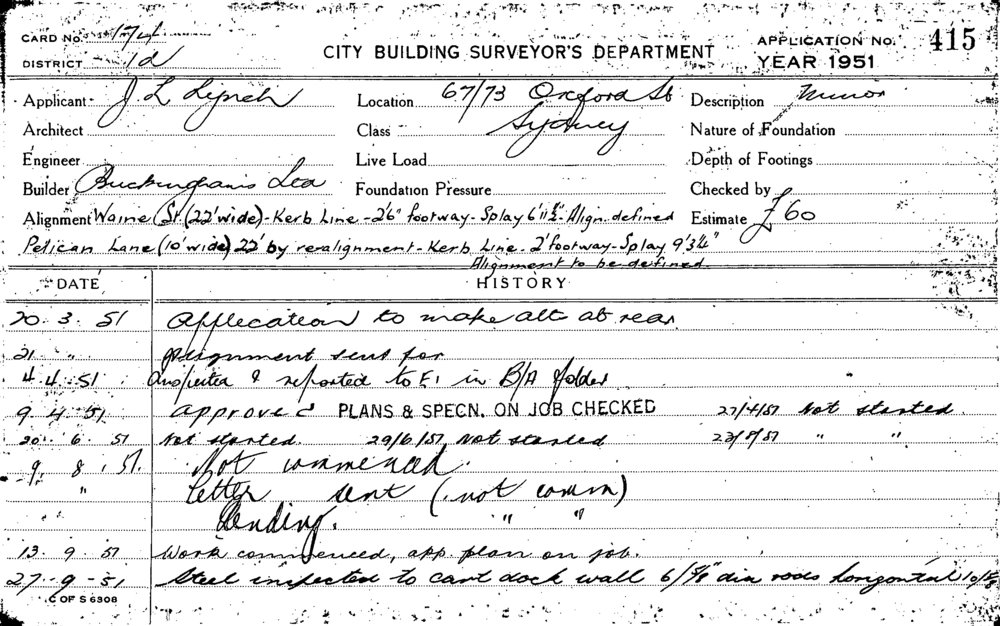 CARD No. 174
DISTRICT 1d
CITY BUILDING SURVEYOR'S DEPARTMENT
APPLICATION No. 415
YEAR 1951
Applicant J L Lynch
Location 67/73 Oxford St Sydney
Description Minor
Architect
Class
Nature of Foundation
Engineer
Live Load
Depth of Footings
Builder Buckinghams Ltd
Foundation Pressure
Checked by
Alignment Waine St (22' wide) - Kerb Line - 2'6" footway - Splay 6'11½" - Align. defined
Estimate £60
Pelican Lane (10' wide) 22' by realignment - Kerb Line - 2' footway - Splay 9'3¼"
Alignment to be defined.
DATE HISTORY
20. 3. 51 Application to make alt at rear
21 " Alignment sent for
4.4.51 Inspected & reported to E1 in B/A folder
9. 4. 51 Approved PLANS & SPECN. ON JOB CHECKED 27/4/51 Not started.
20. 6. 51 Not started. 29/6/51 Not started " "
9. 8. 51. Not commenced.
" Letter sent (not comm)
Pending. " "
13. 9. 51 Work commenced, app. plan on job.
27-9-51 Steel inspected to cart dock wall 6/5/8" dia rods horizontal
C OF S 6308